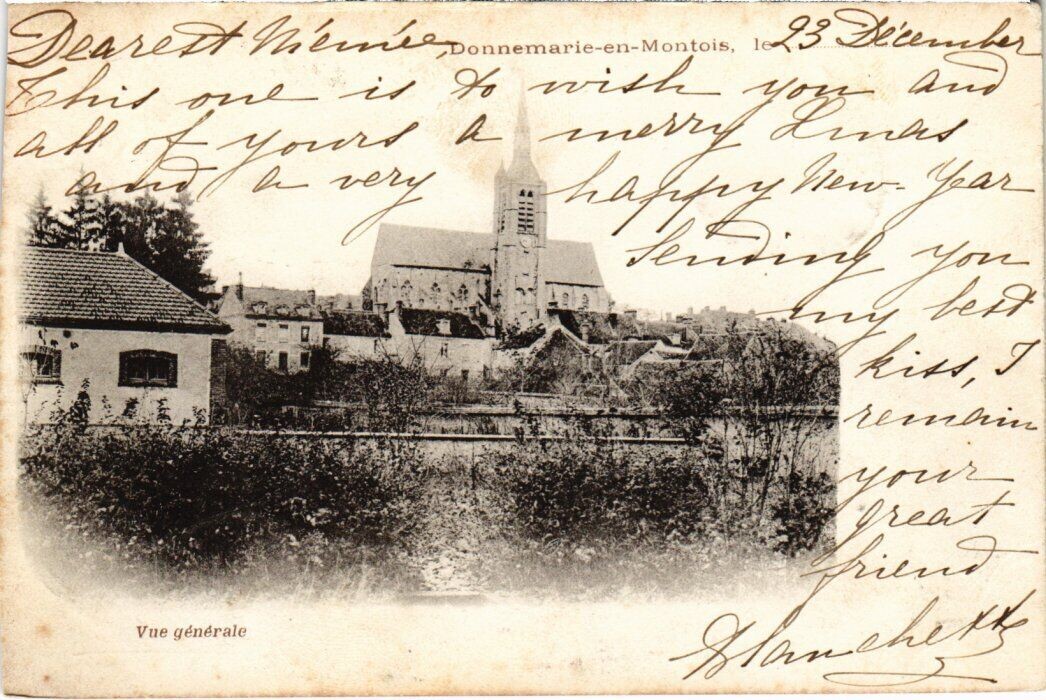 Dearest Niémée, Donnemarie-en-Montois, le 23 Décember
This one is to wish you and
all of yours a merry Xmas
and a very happy New-Year
Sending you
my best
kiss, I
remain
your
great
friend
Blanche xx
Vue générale